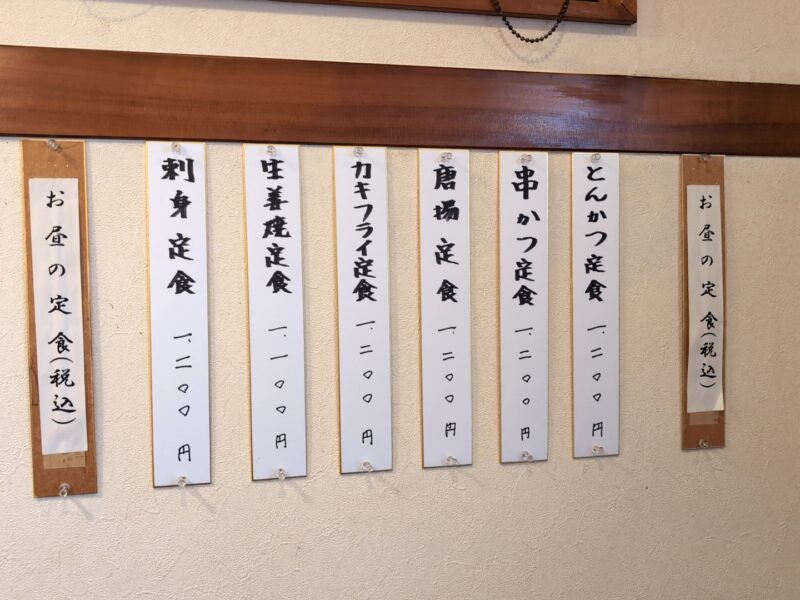 お昼の定食(税込)
とんかつ定食 一、二〇〇円
串かつ定食 一、二〇〇円
唐揚定食 一、二〇〇円
カキフライ定食 一、二〇〇円
生姜焼定食 一、一〇〇円
刺身定食 一、二〇〇円
お昼の定食(税込)